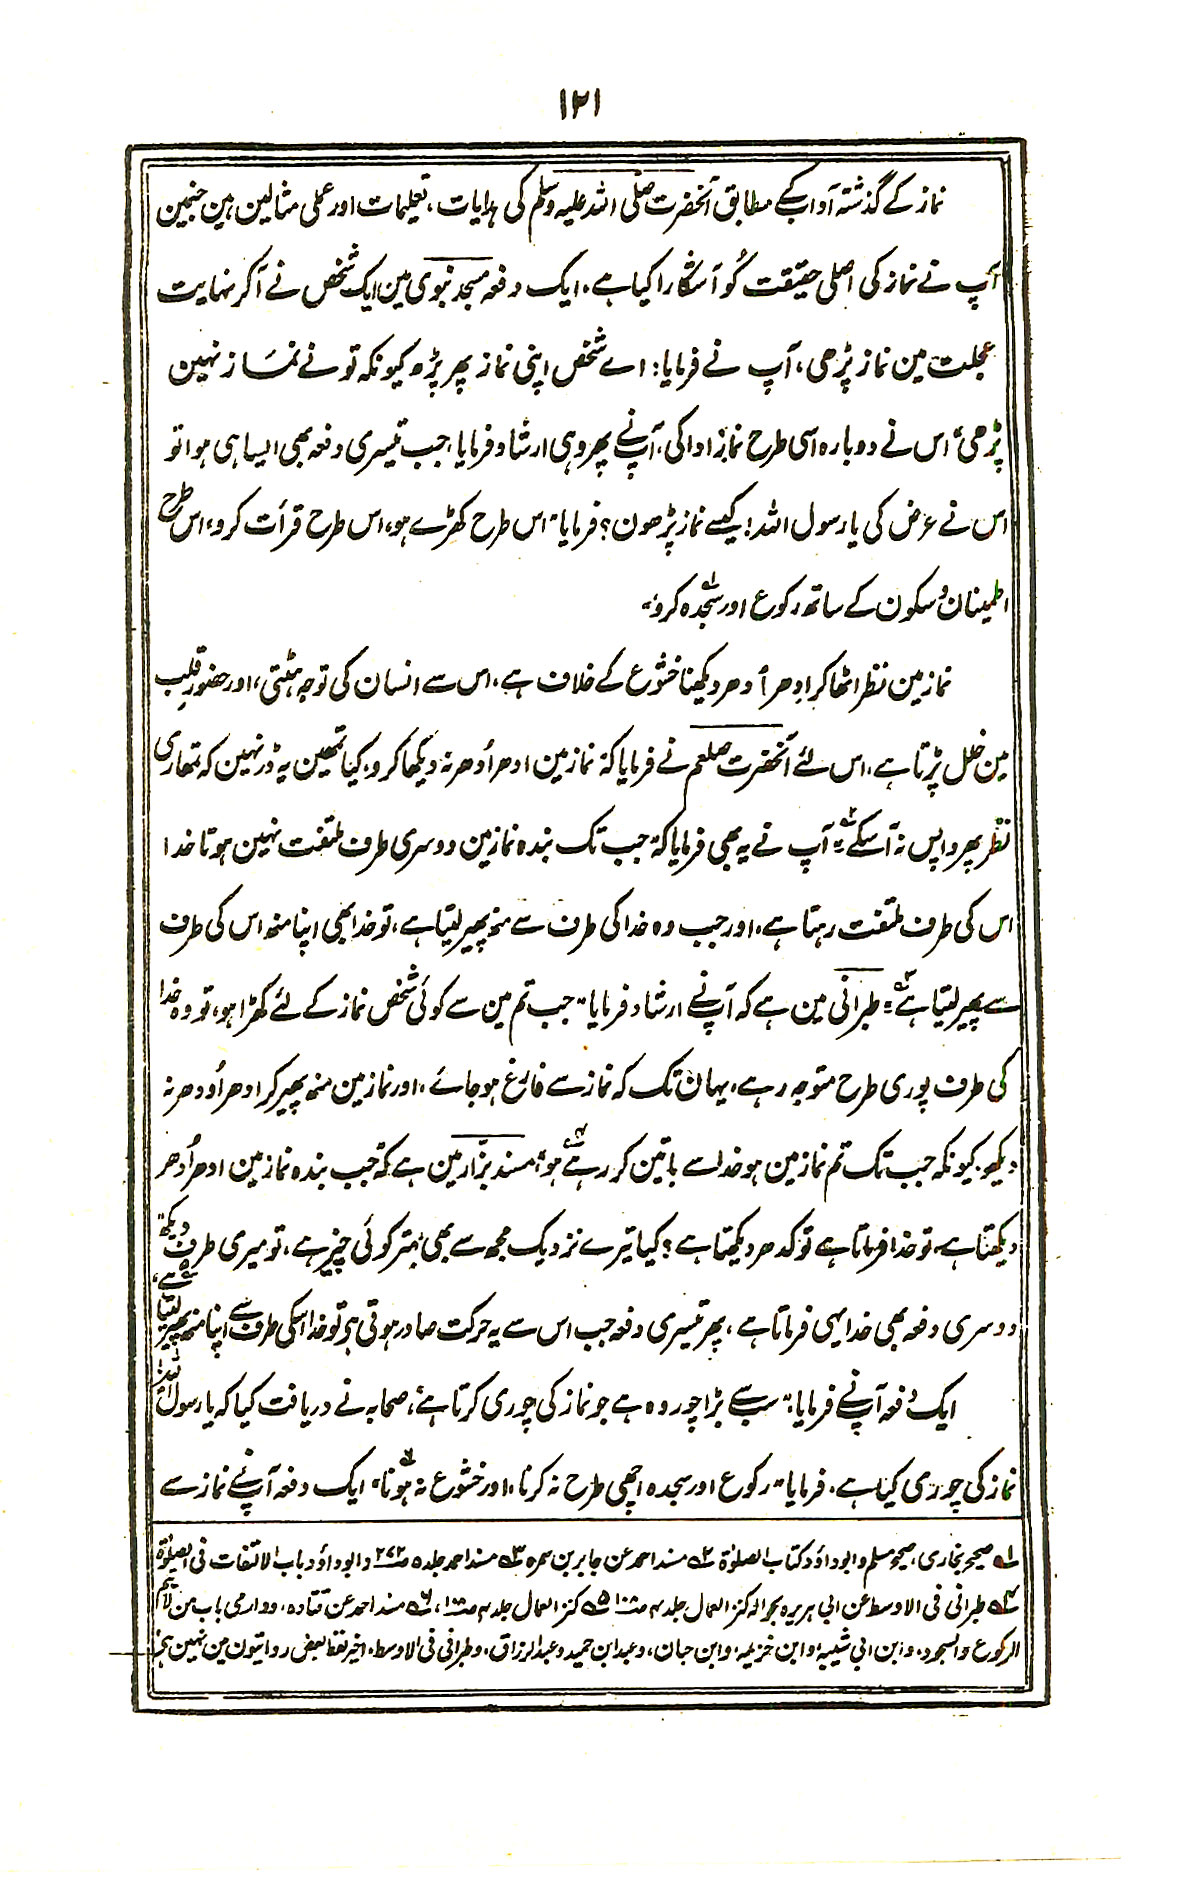 ۱۲۱
نماز کے گذشتہ آداب کے مطابق آنحضرت صلی اللہ علیہ وسلم کی ہدایات، تعلیمات اور عملی مثالین ہین جنمین
آپ نے نماز کی اصلی حقیقت کو آشکارا کیا ہے، ایک دفعہ مسجد نبوی مین ایک شخص نے آکر نہایت
عجلت مین نماز پڑھی، آپ نے فرمایا: اے شخص اپنی نماز پھر پڑھ کیونکہ تو نے نماز نہین
پڑھی" اس نے دوبارہ اسی طرح نماز ادا کی، آپ نے پھر وہی ارشاد فرمایا، جب تیسری دفعہ بھی ایسا ہی ہوا تو
اس نے عرض کی یا رسول اللہ! کیسے نماز پڑھون؟ فرمایا" اس طرح کھڑے ہو، اس طرح قرأت کرو، اس طرح
اطمینان و سکون کے ساتھ رکوع اور سجدہ کرو"۱؎
نماز مین نظر اٹھا کر اِدھر اُدھر دیکھنا خشوع کے خلاف ہے، اس سے انسان کی توجہ ہٹتی، اور حضور قلب
مین خلل پڑتا ہے، اس لئے آنحضرت صلعم نے فرمایا کہ نماز مین ادھر اُدھر نہ دیکھا کرو، کیا تمھین یہ ڈر نہین کہ تمھاری
نظر پھر واپس نہ آسکے۲؎" آپ نے یہ بھی فرمایا کہ" جب تک بندہ نماز مین دوسری طرف ملتفت نہین ہوتا خدا
اس کی طرف ملتفت رہتا ہے، اور جب وہ خدا کی طرف سے منہ پھیر لیتا ہے، تو خدا بھی اپنا منہ اس کی طرف
سے پھیر لیتا ہے۳؎" طبرانی مین ہے کہ آپ نے ارشاد فرمایا" جب تم مین سے کوئی شخص نماز کے لئے کھڑا ہو، تو وہ خدا
کی طرف پوری طرح متوجہ رہے، یہان تک کہ نماز سے فارغ ہو جائے، اور نماز مین منہ پھیر کر ادھر اُدھر نہ
دیکھو، کیونکہ جب تک تم نماز مین ہو خدا سے باتین کر رہے۴؎ ہو" مسند بزار مین ہے کہ" جب بندہ نماز مین ادھر اُدھر
دیکھتا ہے تو خدا فرماتا ہے تو کدھر دیکھتا ہے؟ کیا تیرے نزدیک مجھ سے بھی بہتر کوئی چیز ہے، تو میری طرف دیکھ"
دوسری دفعہ بھی خدا یہی فرماتا ہے، پھر تیسری دفعہ جب اس سے یہ حرکت صادر ہوتی ہی تو خدا اسکی طرف سے اپنا منہ پھیر لیتا ہے۵؎،
ایک دفعہ آپ نے فرمایا:" سب سے بڑا چور وہ ہے جو نماز کی چوری کرتا ہے، صحابہ نے دریافت کیا کہ یا رسول اللہ!
نماز کی چوری کیا ہے، فرمایا" رکوع اور سجدہ اچھی طرح نہ کرنا، اور خشوع نہ ہونا۶؎" ایک دفعہ آپ نے نماز سے
۱؎ صحیح بخاری، صحیح مسلم و ابوداؤد کتاب الصلوٰۃ ۲؎ مسند احمد عن جابر بن سمرہ ۳؎ مسند احمد جلد ۵ ص۲۷۲ و ابوداؤد باب الالتفات فی الصلوٰۃ
۴؎ طبرانی فی الاوسط عن ابی ہریرہ بحوالہ کنز العمال جلد ۴ ص۱۰۸ ۵؎ کنز العمال جلد ۴ ص۱۰۸، ۶؎ مسند احمد عن قتادہ، و دارمی باب من لایتم
الرکوع والسجود، و ابن ابی شیبہ و ابن خزیمہ، و ابن حبان، و عبد ابن حمید و عبد الرزاق، و طبرانی فی الاوسط، اخیر لفظ بعض روایتون مین نہین ہے